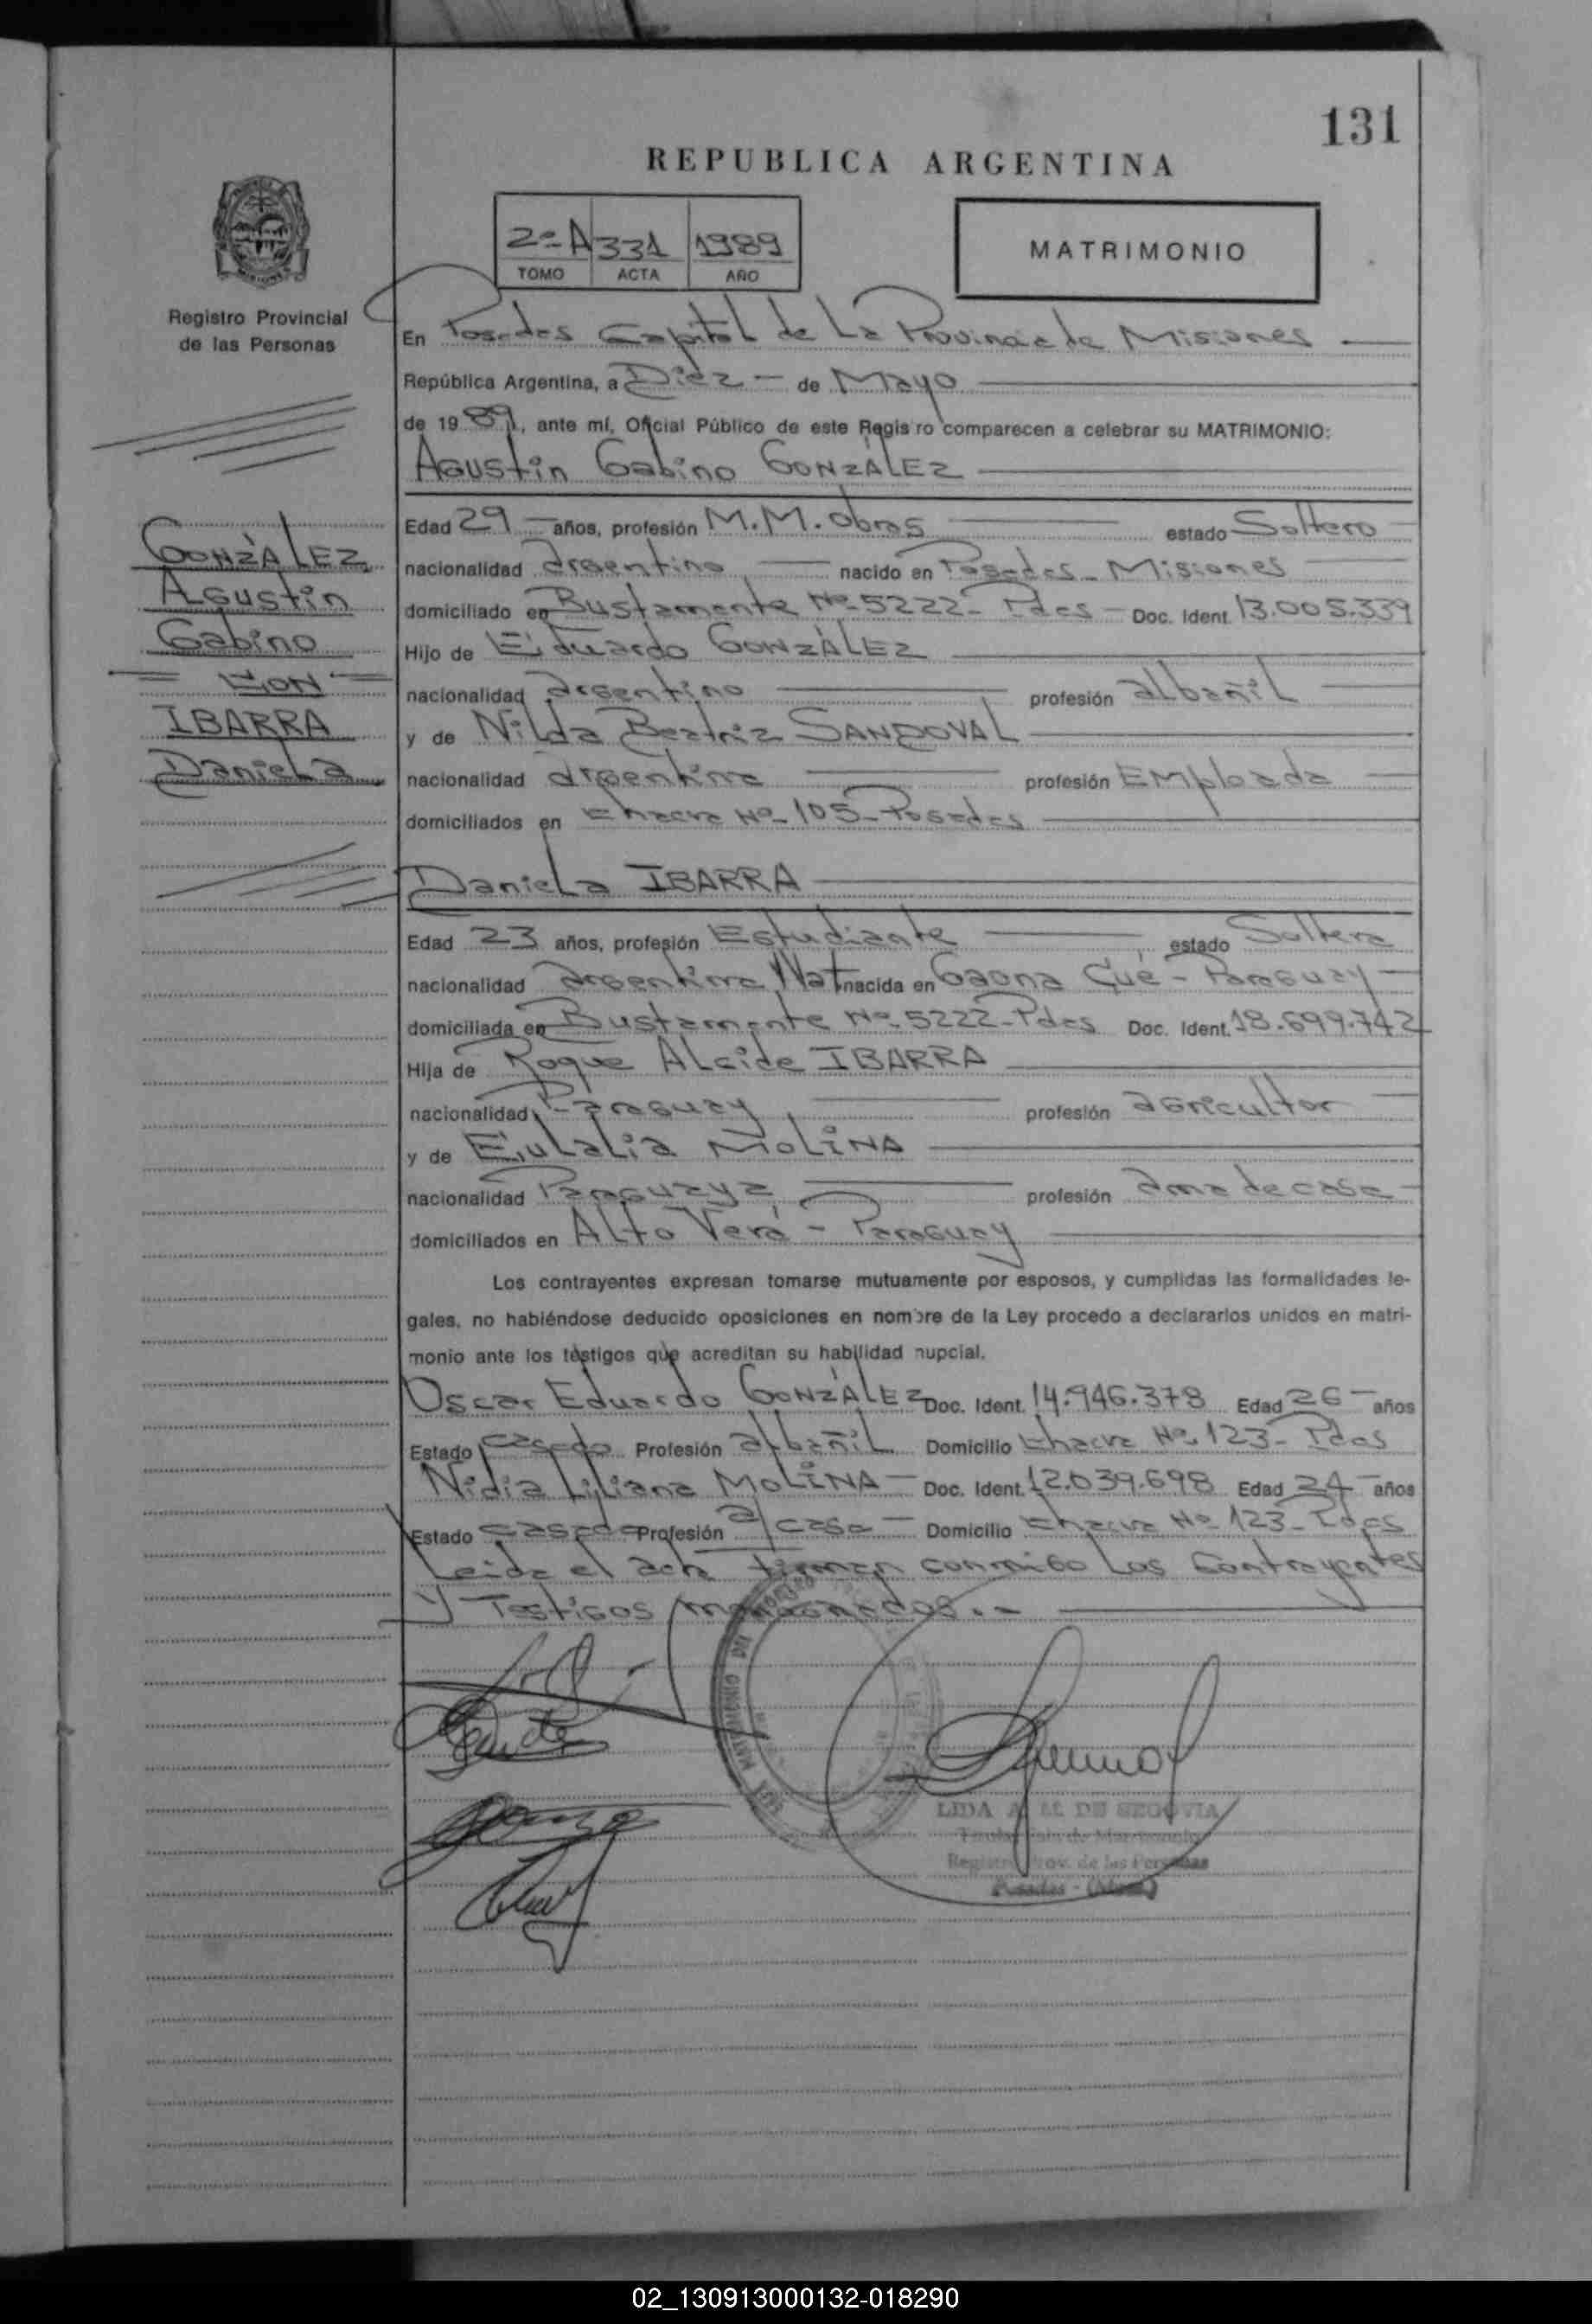 131
REPUBLICA ARGENTINA
2º A 331 1989
TOMO ACTA AÑO
MATRIMONIO
Registro Provincial
de las Personas
En Posadas Capital de La Provincia de Misiones
República Argentina, a Diez de Mayo
de 1989, ante mí, Oficial Público de este Regis ro comparecen a celebrar su MATRIMONIO:
Agustin Gabino GONZÁLEZ
Edad 29 años, profesión M.M. Obras estado Soltero
nacionalidad argentino nacido en Posadas - Misiones
domiciliado en Bustamente Nº 5222 - Pdas - Doc. Ident. 13.005.339
Hijo de Eduardo GONZÁLEZ
nacionalidad argentino profesión albañil
y de Nilda Beatriz SANDOVAL
nacionalidad argentina profesión Empleada
domiciliados en Chacra Nº 105 - Posadas
GONZÁLEZ
Agustin
Gabino
= CON =
IBARRA
Daniela
Daniela IBARRA
Edad 23 años, profesión Estudiante estado Soltera
nacionalidad argentina Nat nacida en Gaona Cué - Paraguay
domiciliada en Bustamente Nº 5222 - Pdas Doc. Ident. 18.699.742
Hija de Roque Alcide IBARRA
nacionalidad Paraguay profesión agricultor
y de Eulalia MOLINA
nacionalidad Paraguaya profesión ama de casa
domiciliados en Alto Verá - Paraguay
Los contrayentes expresan tomarse mutuamente por esposos, y cumplidas las formalidades le-
gales, no habiéndose deducido oposiciones en nombre de la Ley procedo a declararlos unidos en matri-
monio ante los testigos que acreditan su habilidad nupcial.
Oscar Eduardo GONZÁLEZ Doc. Ident. 14.946.378 Edad 26 años
Estado casado Profesión albañil Domicilio Chacra Nº 123 - Pdas
Nidia Liliana MOLINA - Doc. Ident. 12.039.698 Edad 24 años
Estado casada Profesión a/casa - Domicilio Chacra Nº 123 - Pdas
Leida el acta firman conmigo Los Contrayentes
y Testigos mencionados.-
LIDA A. M. DE SEGOVIA
Registro Prov. de las Personas
Posadas - (Mnes.)
02_130913000132-018290